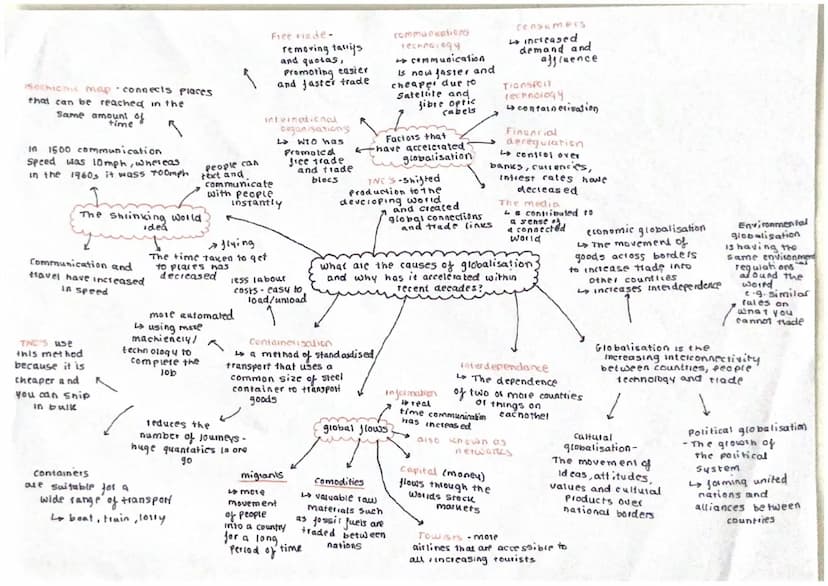 Free trade -
removing tariffs
and quotas,
promoting easier
and faster trade
communications
technology
↳ communication
is now faster and
cheaper due to
satellite and
fibre optic
cabels
consumers
↳ increased
demand and
affluence
Transport
technology
↳ containerisation
Financial
deregulation
↳ control over
banks, currencies,
intrest rates have
decreased
The media
↳ contributed to
a sense of
a connected
world
International
organisations
↳ WTO has
promoted
free trade
and trade
blocs
Factors that
have accelerated
globalisation
TNC'S - shifted
production to the
developing world
and created
global connections
and trade links
Isochronic map - connects places
that can be reached in the
same amount of
time
In 1500 communication
speed was 10mph, whereas
in the 1960s it was 700mph
people can
text and
communicate
with people
instantly
The shrinking world
idea
Communication and
travel have increased
in speed
flying
The time taken to get
to places has
decreased
What are the causes of globalisation
and why has it accelerated within
recent decades?
economic globalisation
↳ The movement of
goods across borders
to increase trade into
other countries
↳ increases interdependence
Environmental
globalisation
is having the
same environment
regulations
around the
world
e.g. similar
rules on
what you
cannot trade
Globalisation is the
increasing interconnectivity
between countries, people
technology and trade
Cultural
globalisation-
The movement of
ideas, attitudes,
values and cultural
products over
national borders
Political globalisation
- The growth of
the political
system
↳ forming united
nations and
alliances between
countries
less labour
costs - easy to
load/unload
more automated
↳ using more
machienery/
technology to
complete the
job
Containerisation
↳ a method of standardised
transport that uses a
common size of steel
container to transport
goods
TNC'S use
this method
because it is
cheaper and
you can ship
in bulk
reduces the
number of journeys -
huge quantatics in one
go
containers
are suitable for a
wide range of transport
↳ boat, train, lorry
Interdependance
↳ The dependence
of two or more countries
or things on
eachother
global flows
Information
↳ real
time communication
has increased
also known as
networks
capital (money)
flows through the
worlds stock
markets
migrants
↳ more
movement
of people
into a country
for a long
period of time
comodities
↳ valuable raw
materials such
as fossil fuels are
traded between
nations
Tourists - more
airlines that are accessible to
all, increasing tourists